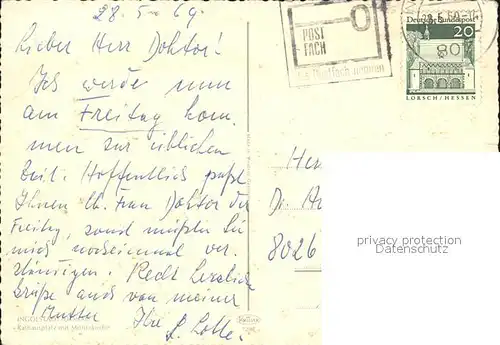 28.5.69.
Lieber Herr Doktor!
Ich werde nun
am Freitag kom-
men zur üblichen
Zeit. Hoffentlich paßt
Ihnen Frau Doktor der
Freitag, sonst müßten Sie
mich nocheinmal ver-
ständigen. Recht herzliche
Grüße auch von meiner
Mutter Ihre Lotte.
POST
FACH
Deutsche Bundespost
20
LORSCH/HESSEN
Her
Dr.
8026
privacy protection
Datenschutz
Rathausplatz mit